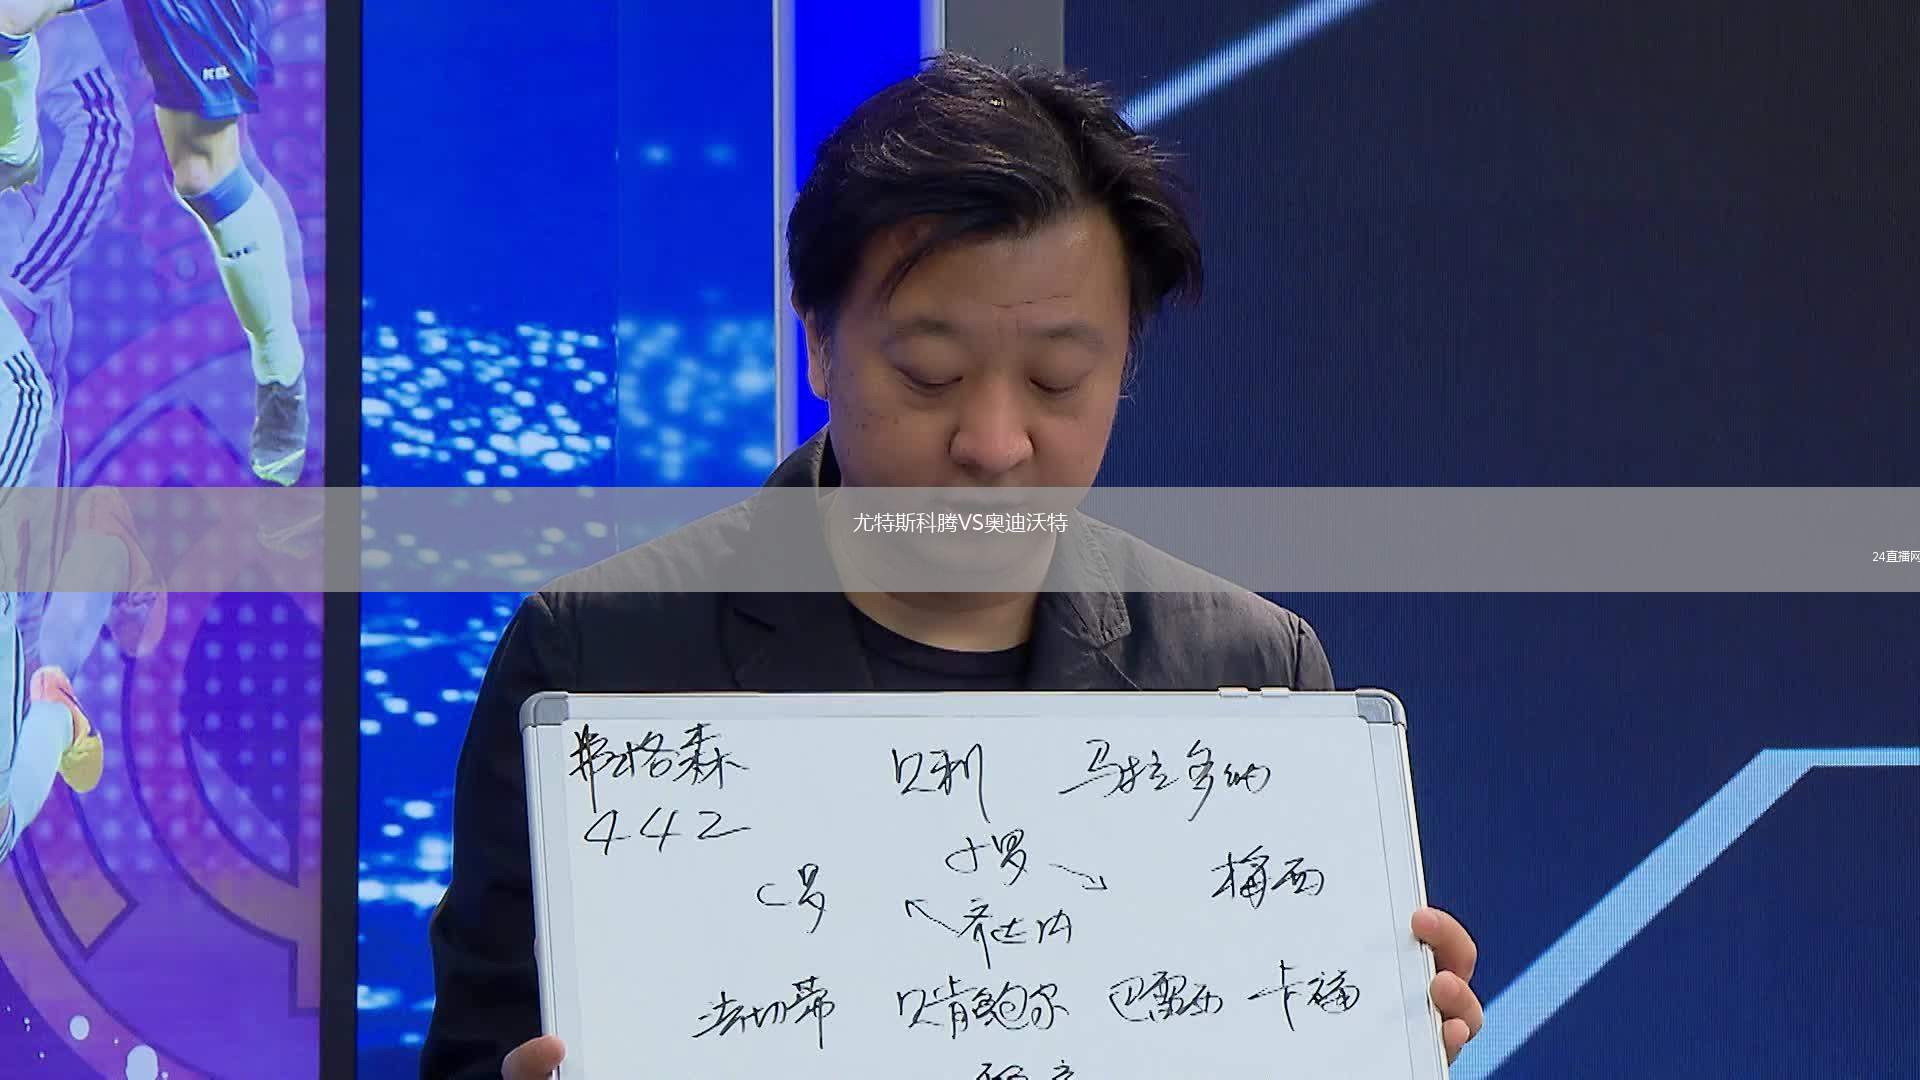 KEL
尤特斯科腾VS奥迪沃特
24直播网
弗格森
贝利 马拉多纳
442
小罗
C罗
梅西
齐达内
法切蒂 贝肯鲍尔 巴雷西 卡福